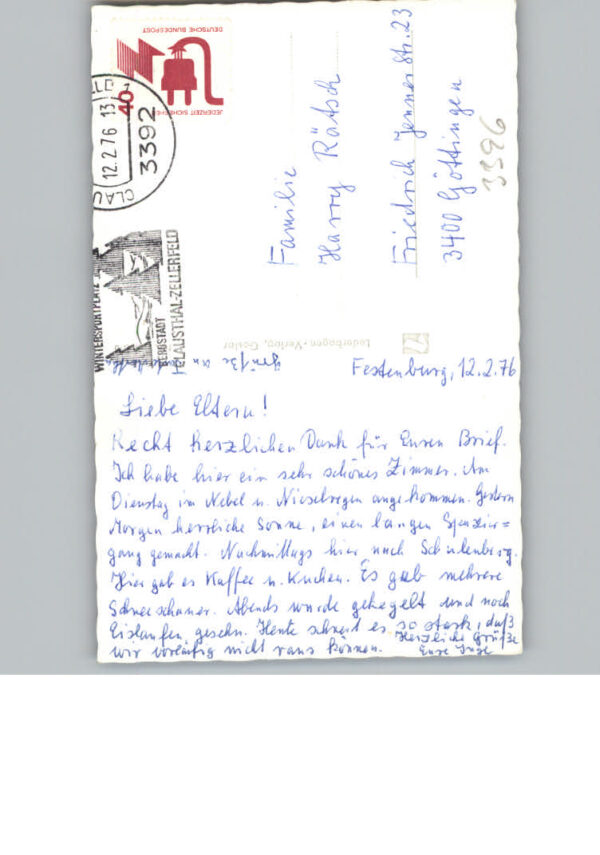 DEUTSCHE BUNDESPOST
JEDERZEIT SICHERHEIT
40
12.2.76 13
3392
WINTERSPORTPLATZ
BERGSTADT
CLAUSTHAL-ZELLERFELD
Familie
Harry Rätsch
Friedrich Jenner Str. 23
3400 Göttingen
3396
Lederbogen-Verlag, Goslar
Grüße an
Festenburg, 12.2.76
Liebe Eltern!
Recht herzlichen Dank für Euren Brief.
Ich habe hier ein sehr schönes Zimmer. Am
Dienstag in Nebel u. Nieselregen angekommen. Gestern
Morgen herrliche Sonne, einen langen Spazier=
gang gemacht. Nachmittags hier nach Schulenberg.
Hier gab es Kaffee u. Kuchen. Es gab mehrere
Schneeschauer. Abends wurde gekegelt und noch
Eislaufen gesehn. Heute schneit es so stark, daß
wir vorläufig nicht raus können.
Herzliche Grüße
Eure Inge